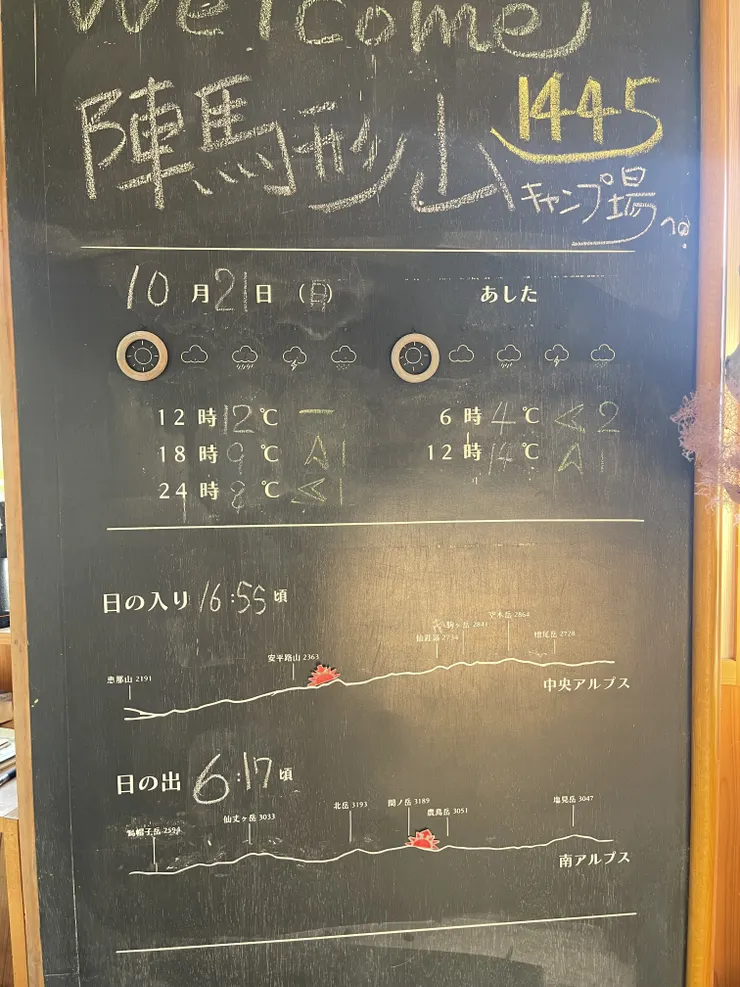 Welcome
陣馬形山 1445
キャンプ場へ。
10月21日（日） あした
12時12℃ ー 6時4℃ < 2
18時9℃ A 1 12時14℃ A 1
24時8℃ < 1
日の入り 16:55頃
空木岳 2864
駒ヶ岳 2841
仙涯嶺 2734 越百岳 2728
安平路山 2363
恵那山 2191
中央アルプス
日の出 6:17頃
北岳 3193 間ノ岳 3189 塩見岳 3047
仙丈ヶ岳 3033 農鳥岳 3051
烏帽子岳 2594
南アルプス